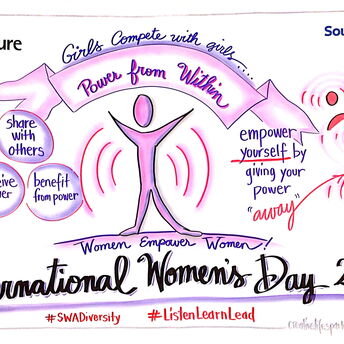 ure
Sou
Girls Compete with girls....
Power from Within
share
with
others
eive
wer
benefit
from power
empower
yourself by
giving your
power
"away"
Women Empower Women!
ernational Women's Day 2
#SWADiversity
#ListenLearnLead